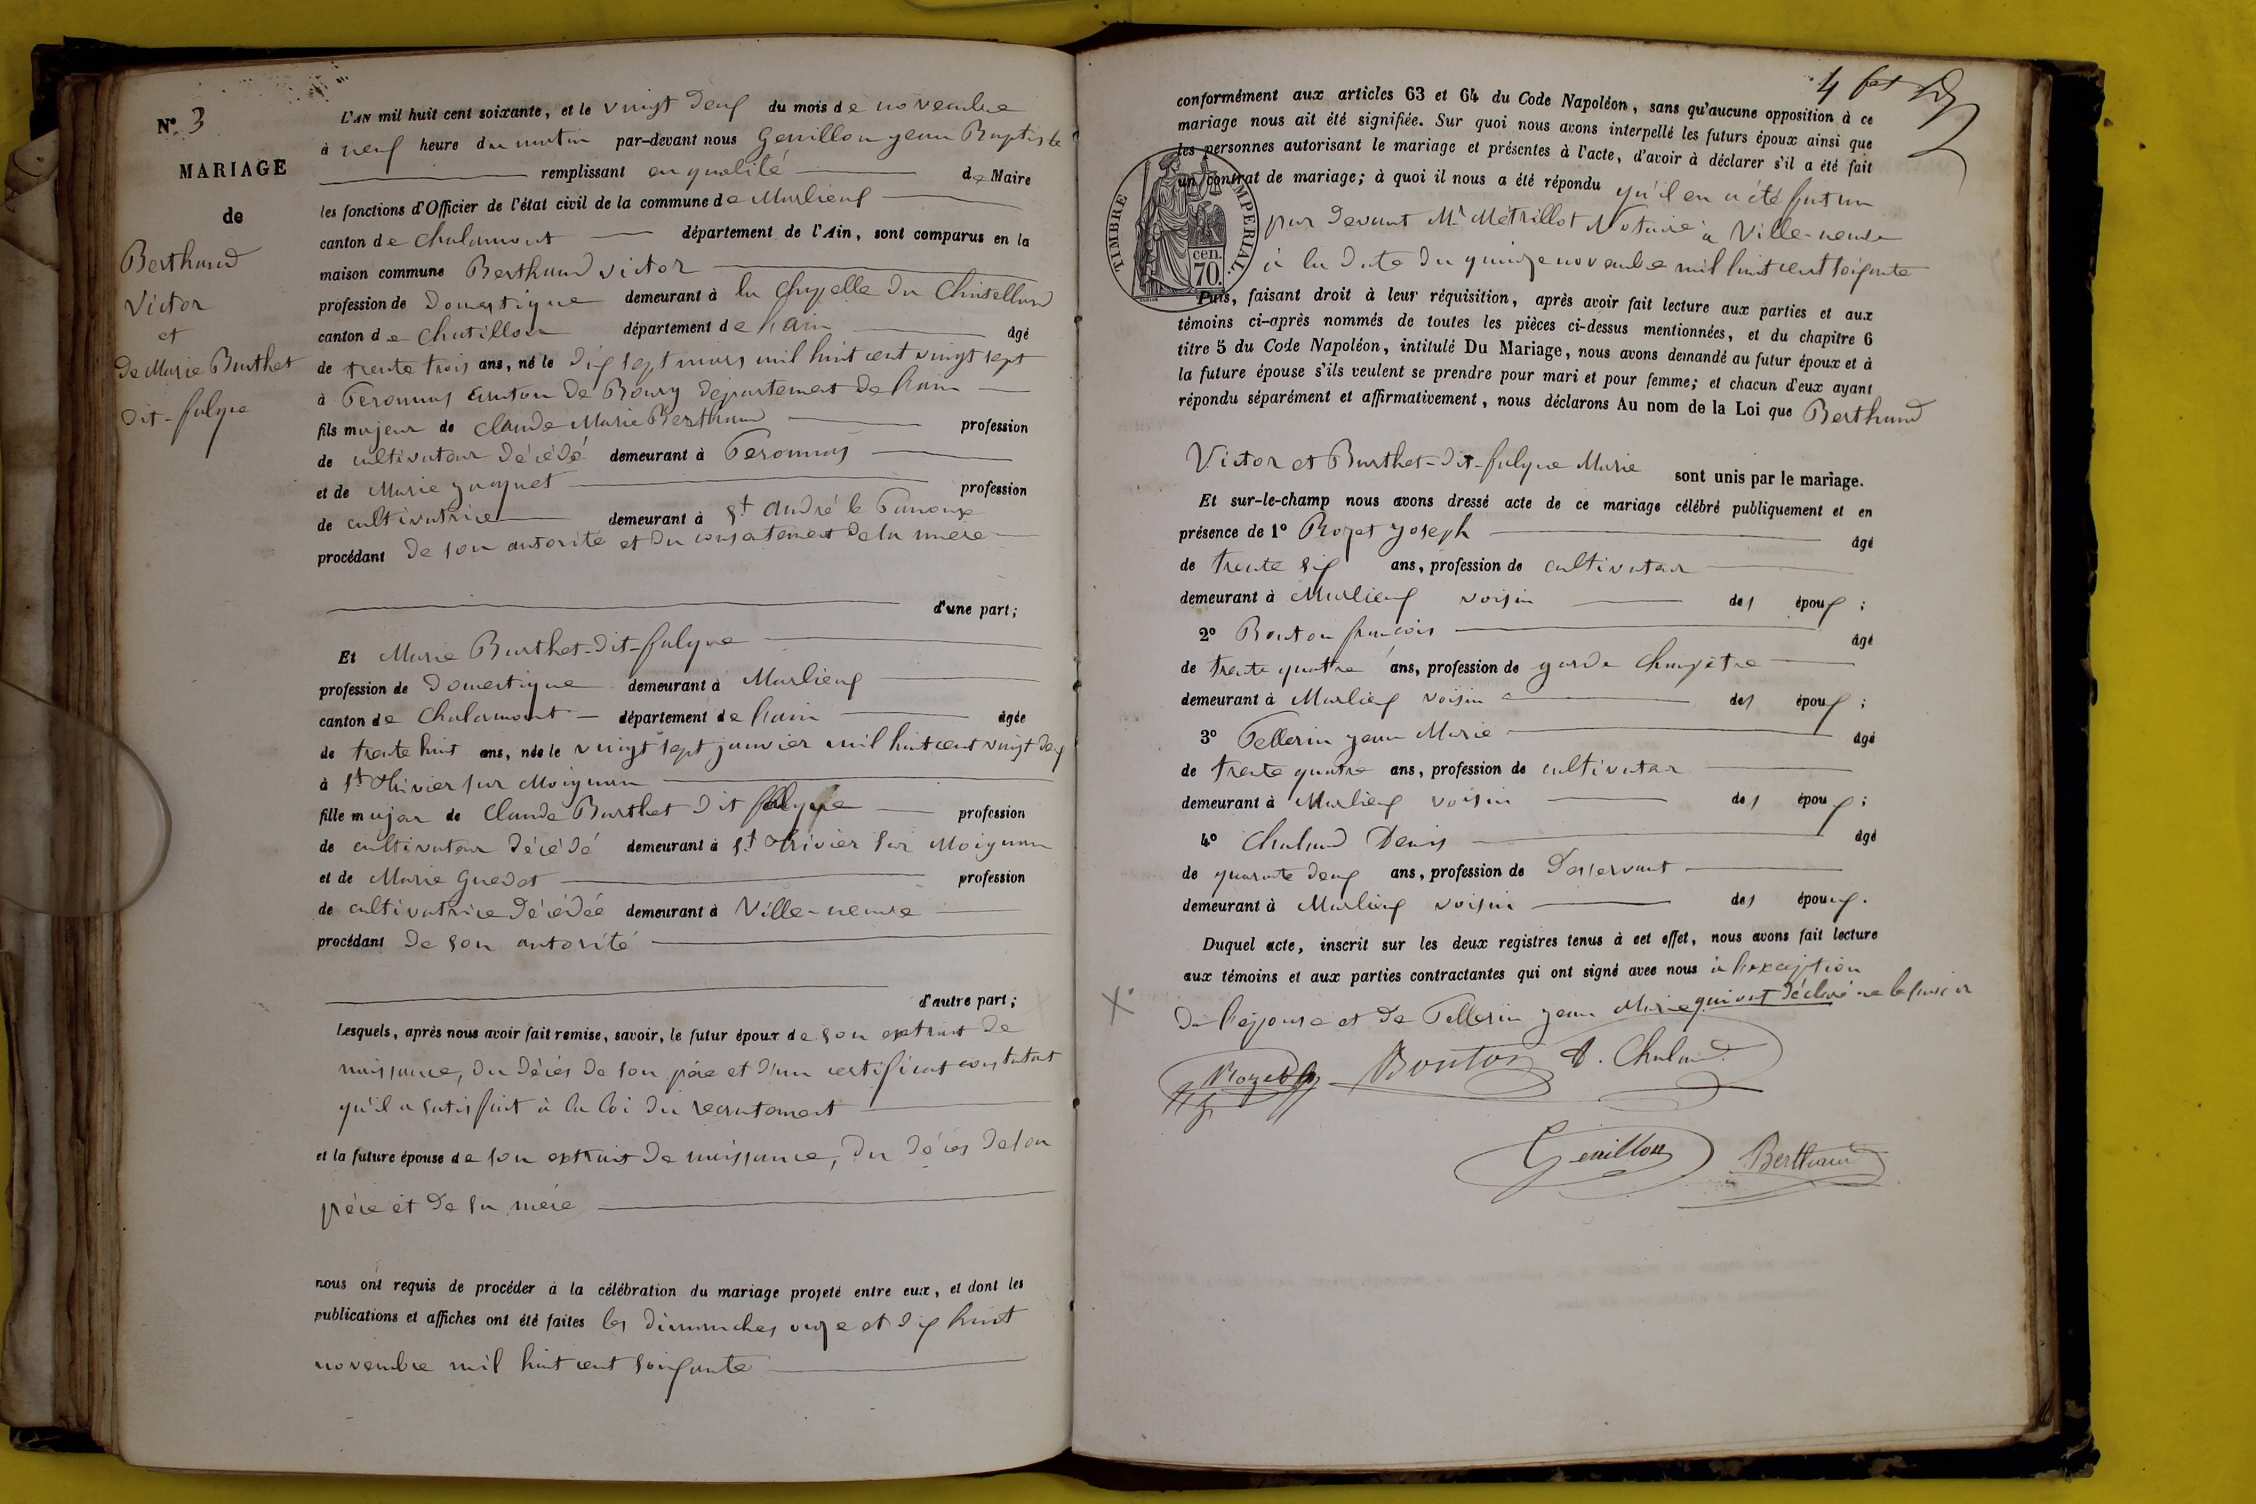 N° 3
MARIAGE
de
Berthaud
Victor
et
de Marie Burthet
dit-fulque
L'AN mil huit cent soixante, et le vingt deux du mois de novembre
à neuf heure du matin par-devant nous Genillon jean Baptiste
remplissant en qualité de Maire
les fonctions d'Officier de l'état civil de la commune de Marlieux
canton de chalamont département de l'Ain, sont comparus en la
maison commune Berthaud victor
profession de Domestique demeurant à la chapelle du Chatellard
canton de chatillon département de l'ain âgé
de trente trois ans, né le dix sept mars mil huit cent vingt sept
à Peronnas canton de Bourg département de l'ain
fils majeur de claude Marie Berthaud profession
de cultivateur décédé demeurant à Peronnas
et de Marie profession
de cultivatrice demeurant à St André le Panoux
procédant de son autorité et du consentement de la mère
d'une part;
Et Marie Burthet-dit-fulque
profession de Domestique demeurant à Marlieux
canton de Chalamont département de l'ain âgée
de trente huit ans, née le vingt sept janvier mil huit cent vingt deux
à St Thivier sur Moignans
fille majeur de Claude Burthet dit fulque profession
de cultivateur décédé demeurant à St thrivier sur Moignans
et de Marie Guedet profession
de cultivatrice Décédée demeurant à Ville-neuve
procédant de son autorité
d'autre part;
Lesquels, après nous avoir fait remise, savoir, le futur époux de son extrait de
naissance, du décès de son père et d'un certificat constatant
qu'il a satisfait à la loi du recrutement
et la future épouse de son extrait de naissance, du décès de son
père et de sa mère
nous ont requis de procéder à la célébration du mariage projeté entre eux, et dont les
publications et affiches ont été faites les dimanches onze et dix huit
novembre mil huit cent soixante
4
conformément aux articles 63 et 64 du Code Napoléon, sans qu'aucune opposition à ce
mariage nous ait été signifiée. Sur quoi nous avons interpellé les futurs époux ainsi que
les personnes autorisant le mariage et présentes à l'acte, d'avoir à déclarer s'il a été fait
un contrat de mariage; à quoi il nous a été répondu qu'il en a été fait un
par devant Mr Métrillot Notaire à Ville-neuve
à la date du quinze novembre mil huit cent soixante
TIMBRE IMPERIAL.
70 cen.
Puis, faisant droit à leur réquisition, après avoir fait lecture aux parties et aux
témoins ci-après nommés de toutes les pièces ci-dessus mentionnées, et du chapitre 6
titre 5 du Code Napoléon, intitulé Du Mariage, nous avons demandé au futur époux et à
la future épouse s'ils veulent se prendre pour mari et pour femme; et chacun d'eux ayant
répondu séparément et affirmativement, nous déclarons Au nom de la Loi que Berthaud
Victor et Burthet-dit-fulque Marie sont unis par le mariage.
Et sur-le-champ nous avons dressé acte de ce mariage célébré publiquement et en
présence de 1° Rozet joseph âgé
de trente six ans, profession de cultivateur
demeurant à Marlieux voisin des époux;
2° Bouton françois âgé
de trente quatre ans, profession de garde champètre
demeurant à Marlieux voisin des époux;
3° Pellerin jean Marie âgé
de trente quatre ans, profession de cultivateur
demeurant à Marlieux voisin des époux;
4° Chaland Denis âgé
de quarante deux ans, profession de Desservant
demeurant à Marlieux voisin des époux.
Duquel acte, inscrit sur les deux registres tenus à cet effet, nous avons fait lecture
aux témoins et aux parties contractantes qui ont signé avec nous à l'exception
de l'épouse et de Pellerin jean Marie qui ont déclaré ne le savoir
Rozet Bouton D. Chaland
Genillon Berthaud